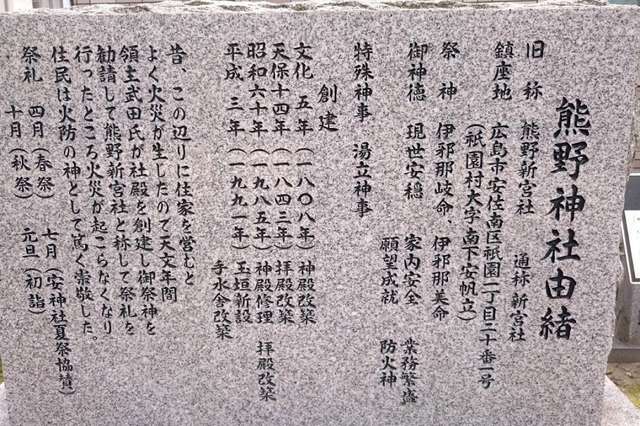 熊野神社由緒
旧称 熊野新宮社 通称 新宮社
鎮座地 広島市安佐南区祇園二丁目三十番一号
(祇園村大字南下安帆立)
祭神 伊邪那岐命、伊邪那美命
御神徳 現世安穏 家内安全 業務繁盛
願望成就 防火神
特殊神事 湯立神事
創建
文化 五年(一八〇八年)神殿改築
天保十四年(一八四三年)拝殿改築
昭和六十年(一九八五年)神殿修理 拝殿改築
平成 三年(一九九一年)玉垣新設
手水舎改築
昔、この辺りに住家を営むと
よく火災が生したので天文年間
領主武田氏が社殿を創建し御祭神を
勧請して熊野新宮社と称して祭礼を
行ったところ火災が起こらなくなり
住民は火防の神として篤く崇敬した。
祭礼 四月(春祭) 七月(安神社夏祭協賛)
十月(秋祭) 元旦(初詣)